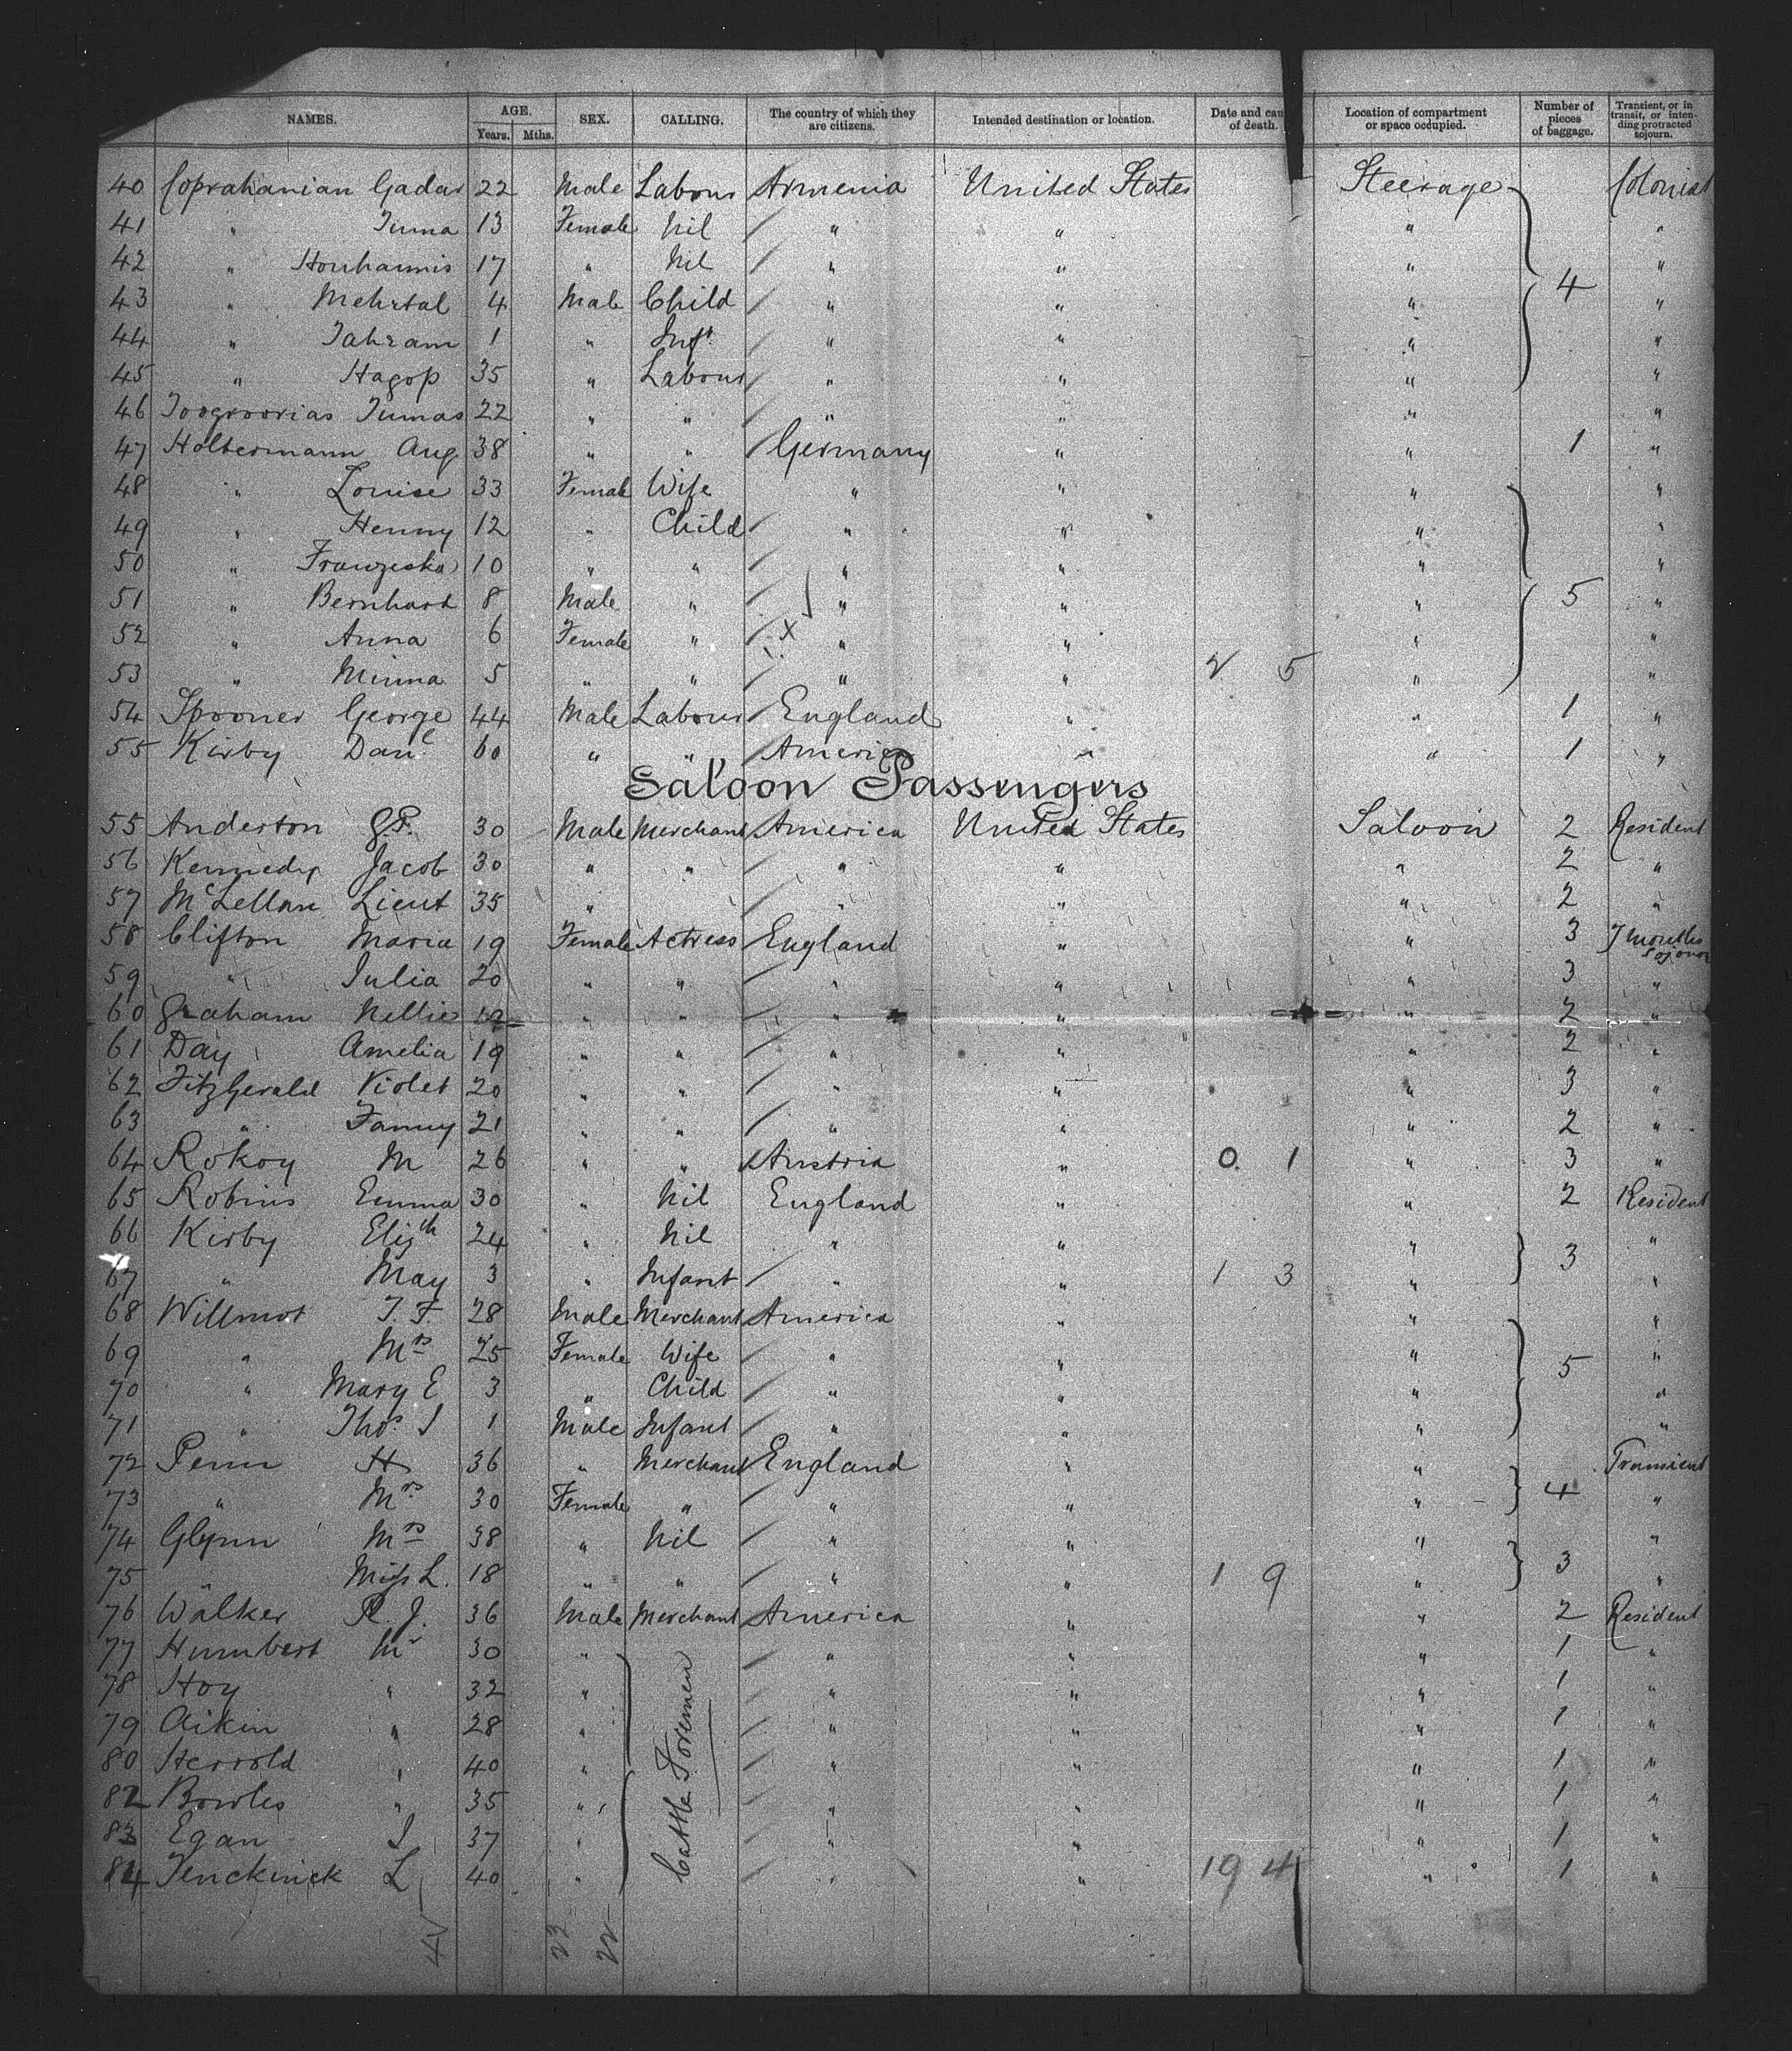 NAMES. AGE. Years. Mths. SEX. CALLING. The country of which they are citizens. Intended destination or location. Date and cau of death. Location of compartment or space occupied. Number of pieces of baggage. Transient, or in transit, or intending protracted sojourn.
40 Coprahanian Gadar 22 Male Labour Armenia United States Steerage Colonist
41 " Tuma 13 Female Nil " " " "
42 " Honhannis 17 " Nil " " " "
43 " Mehrtal 4 Male Child " " " 4 "
44 " Tahram 1 " Inft " " " "
45 " Hagop 35 " Labour " " " "
46 Toogroorias Tumas 22 " " " " " "
47 Holtermann Aug. 38 " " Germany " " 1 "
48 " Louise 33 Female Wife " " " "
49 " Henny 12 " Child " " " "
50 " Franzeska 10 " " " " " "
51 " Bernhard 8 Male " " " " 5 "
52 " Anna 6 Female " x " " " "
53 " Minna 5 " " " " 2 5 " "
54 Spooner George 44 Male Labour England " " 1 "
55 Kirby Danl 60 " " America " " 1 "
Saloon Passengers
55 Anderton G.P. 30 Male Merchant America United States Saloon 2 Resident
56 Kennedy Jacob 30 " " " " " 2 "
57 McLellan Lieut 35 " " " " 2 "
58 Clifton Maria 19 Female Actress England " " 3 7 months Sojour
59 " Julia 20 " " " " " 3 "
60 Graham Nellie " " " " " 2 "
61 Day Amelia 19 " " " " " 2 "
62 FitzGerald Violet 20 " " " " " 3 "
63 " Fanny 21 " " " " " 2 "
64 Rokoy M 26 " " Austria " 0. 1 " 3 "
65 Robins Emma 30 " Nil England " " 2 Resident
66 Kirby Elizth 24 " Nil " " " 3 "
67 " May 3 " Infant " " 1 3 " "
68 Willmot T. F. 28 Male Merchant America " " "
69 " Mrs 25 Female Wife " " " 5 "
70 " Mary E 3 " Child " " " "
71 " Thos. J 1 Male Infant " " " "
72 Penn H 36 " Merchant England " " Transient
73 " Mrs 30 Female " " " " 4 "
74 Glynn Mrs 38 " Nil " " " "
75 " Miss L. 18 " " " " 1 9 " 3 "
76 Walker R. J. 36 Male Merchant America " " 2 Resident
77 Humbert Mr 30 " Cattle Foremen " " " 1 "
78 Hoy " 32 " " " " 1 "
79 Aikin " 28 " " " " 1 "
80 Herrold " 40 " " " " 1 "
82 Bowles " 35 " " " " 1 "
83 Egan J 37 " " " " 1 "
84 Tenckinck L 40 " " " 19 4 " 1 "